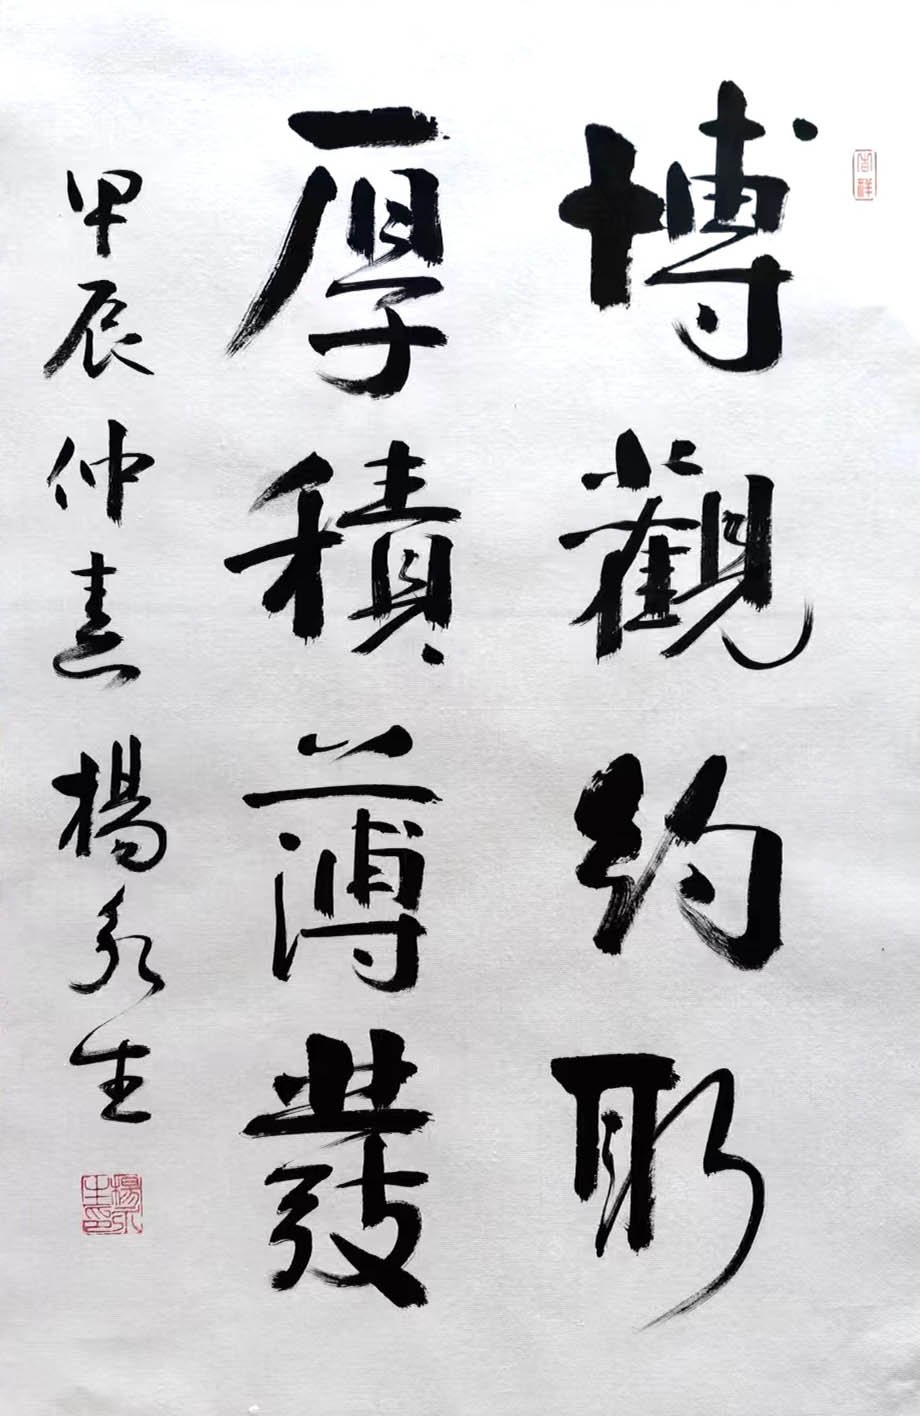 博觀約取
厚積薄發
甲辰仲春楊永生
吉祥
楊永生印